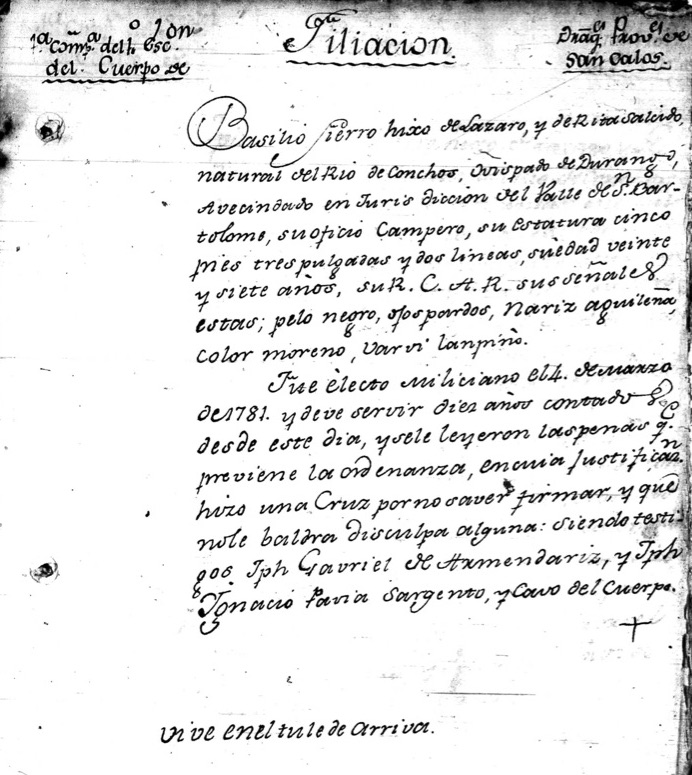 1ª Compª del 1º Esc.ᵒⁿ
del Cuerpo de
Filiacion.
Drag.ˢ Prov.ˢ de
San Calos.
Basilio Fierro hixo de Lazaro, y de Rita Salcido,
natural del Rio de Conchos, Ovispado de Durango,
Avecindado en Juris diccion del Valle de Sⁿ. Bar-
tolome, su oficio Campero, su estatura cinco
pies tres pulgadas y dos lineas, su edad veinte
y siete años, su R. C. A. R. sus señales
estas; pelo negro, ojos pardos, Nariz aguileña,
Color moreno, varvi lanpiño.
Fue electo Miliciano el 4. de Marzo
de 1781. y deve servir diez años contados
desde este dia, y sele leyeron las penas q.ᵉ
previene la ordenanza, en cuia Justificaz.ⁿ
hizo una Cruz por no saver firmar, y que
nole baldra disculpa alguna: siendo testi-
gos Jph Gavriel de Armendariz, y Jph
Ignacio Pavia Sargento, y Cavo del Cuerpo.
vive en el tule de arriva.